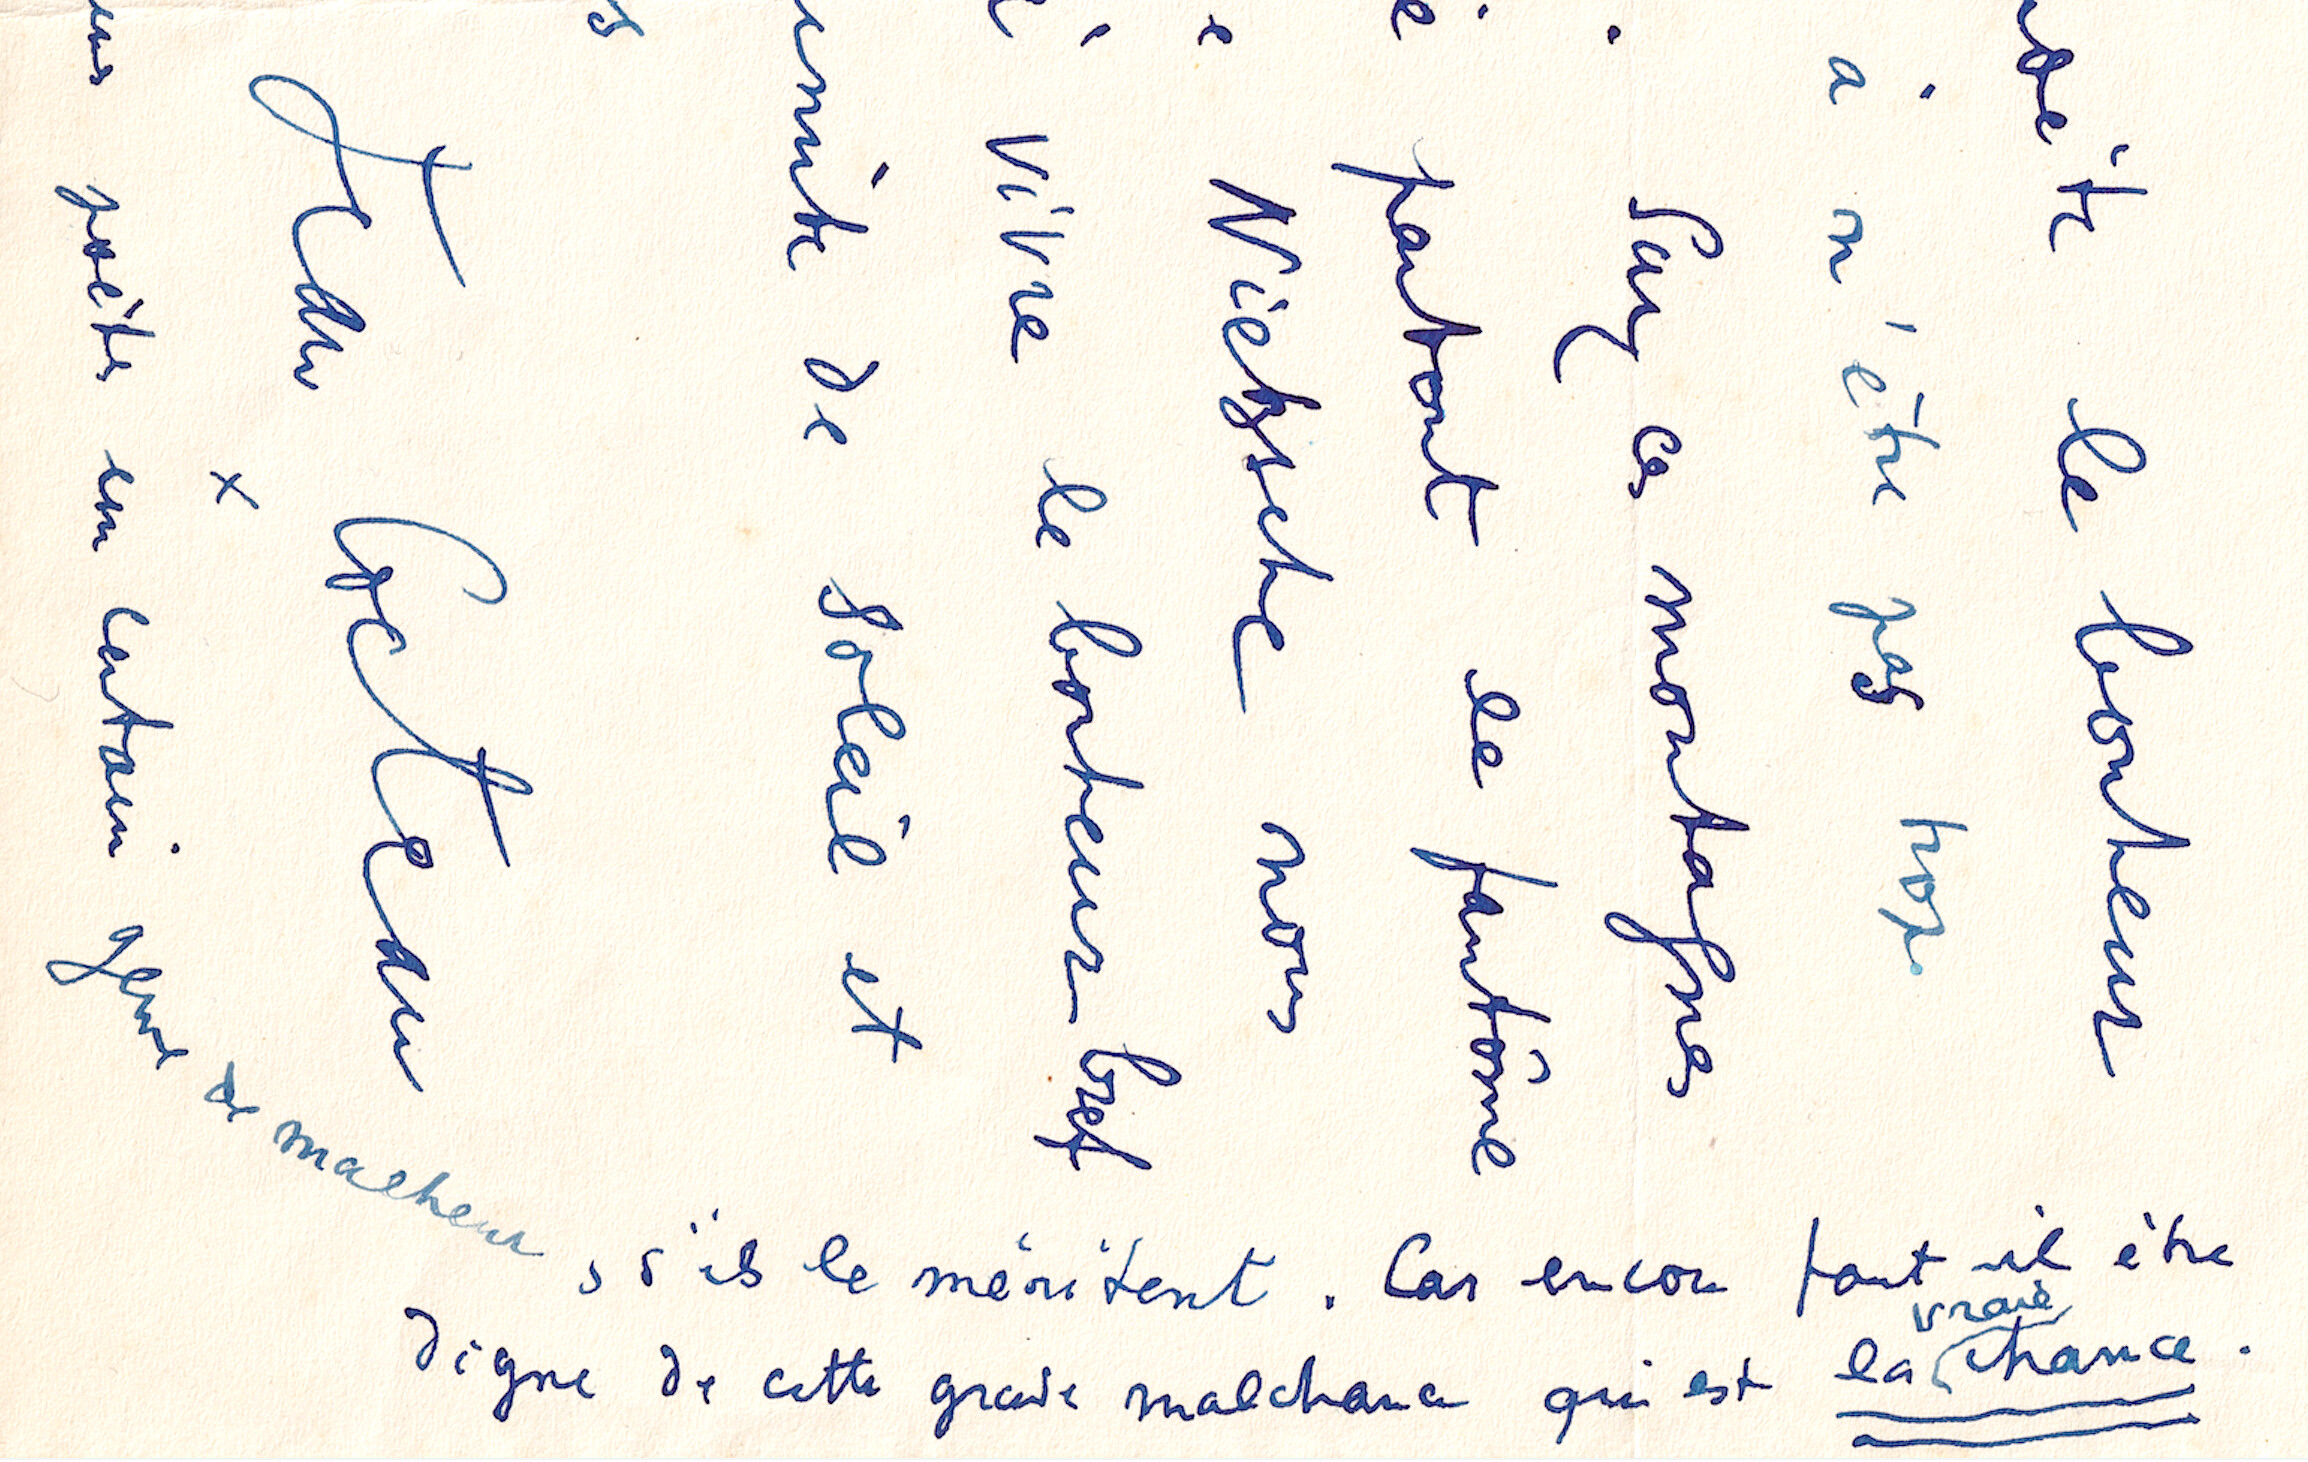 le bonheur
à n'être pas trop.
Par ces montagnes
partout le fantôme
Nietzsche nous
vivre le bonheur bref
de soleil et
Jean Cocteau
x
poètes un certain genre de malheur, s'ils le méritent. Car encore faut il être
digne de cette grande malchance qui est la vraie chance.